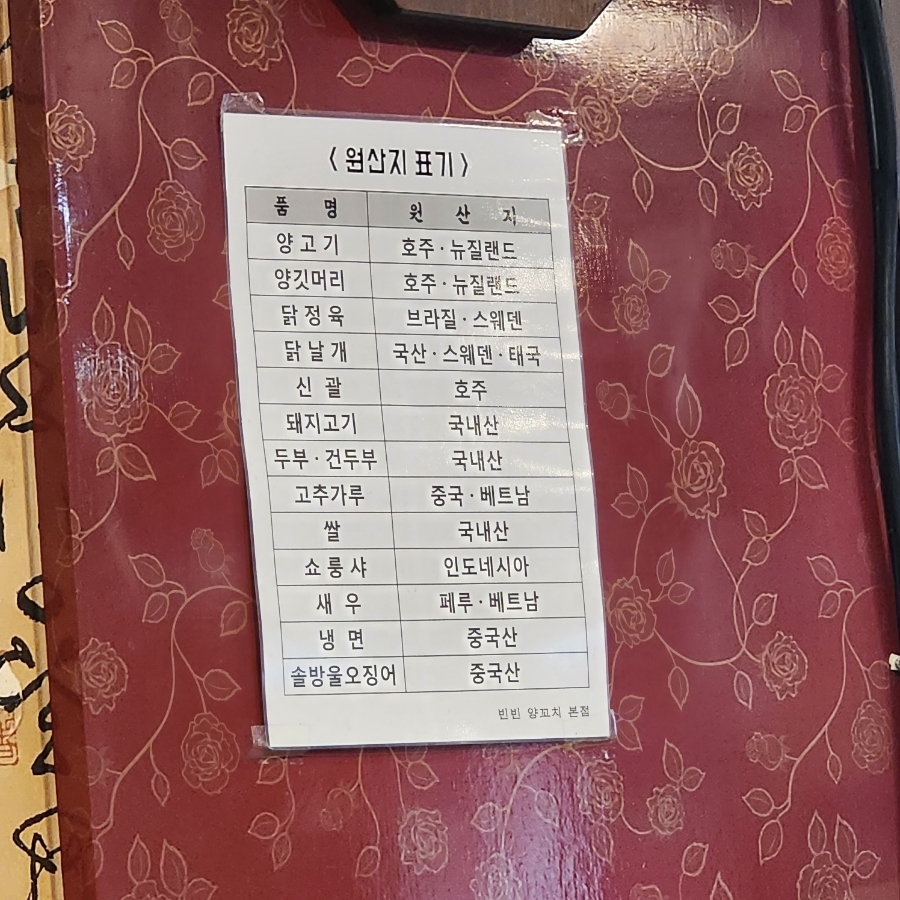 < 원산지 표기 >
품 명 원 산 지
양고기 호주 · 뉴질랜드
양깃머리 호주 · 뉴질랜드
닭정육 브라질 · 스웨덴
닭날개 국산 · 스웨덴 · 태국
신 괄 호주
돼지고기 국내산
두부 · 건두부 국내산
고추가루 중국 · 베트남
쌀 국내산
쇼룽샤 인도네시아
새 우 페루 · 베트남
냉 면 중국산
솔방울오징어 중국산
빈빈 양꼬치 본점